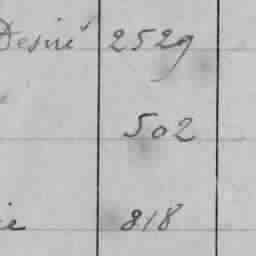 Desiré 2529
502
818